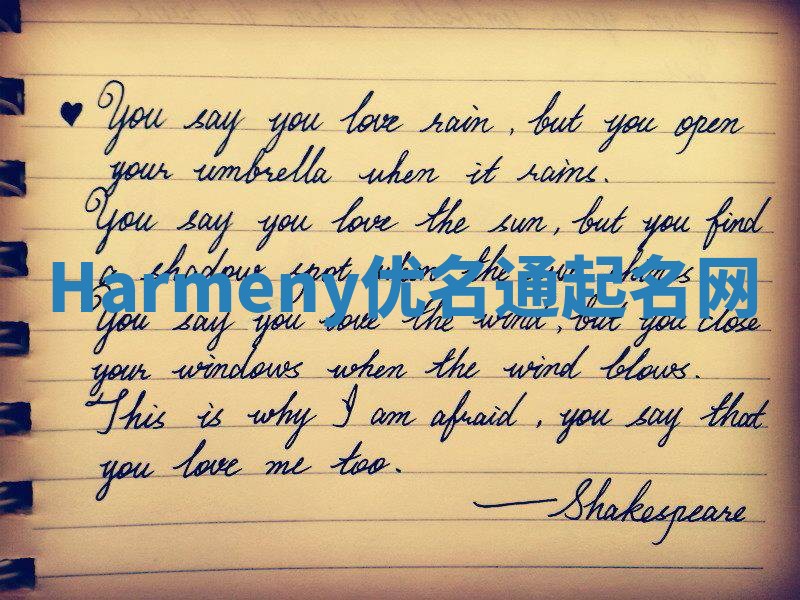 ♥ You say you love rain, but you open
your umbrella when it rains.
You say you love the sun, but you find
a shadow spot when the sun shines
Harmeny优名通起名网
You say you love the wind, but you close
your windows when the wind blows.
This is why I am afraid, you say that
you love me too.
—Shakespeare